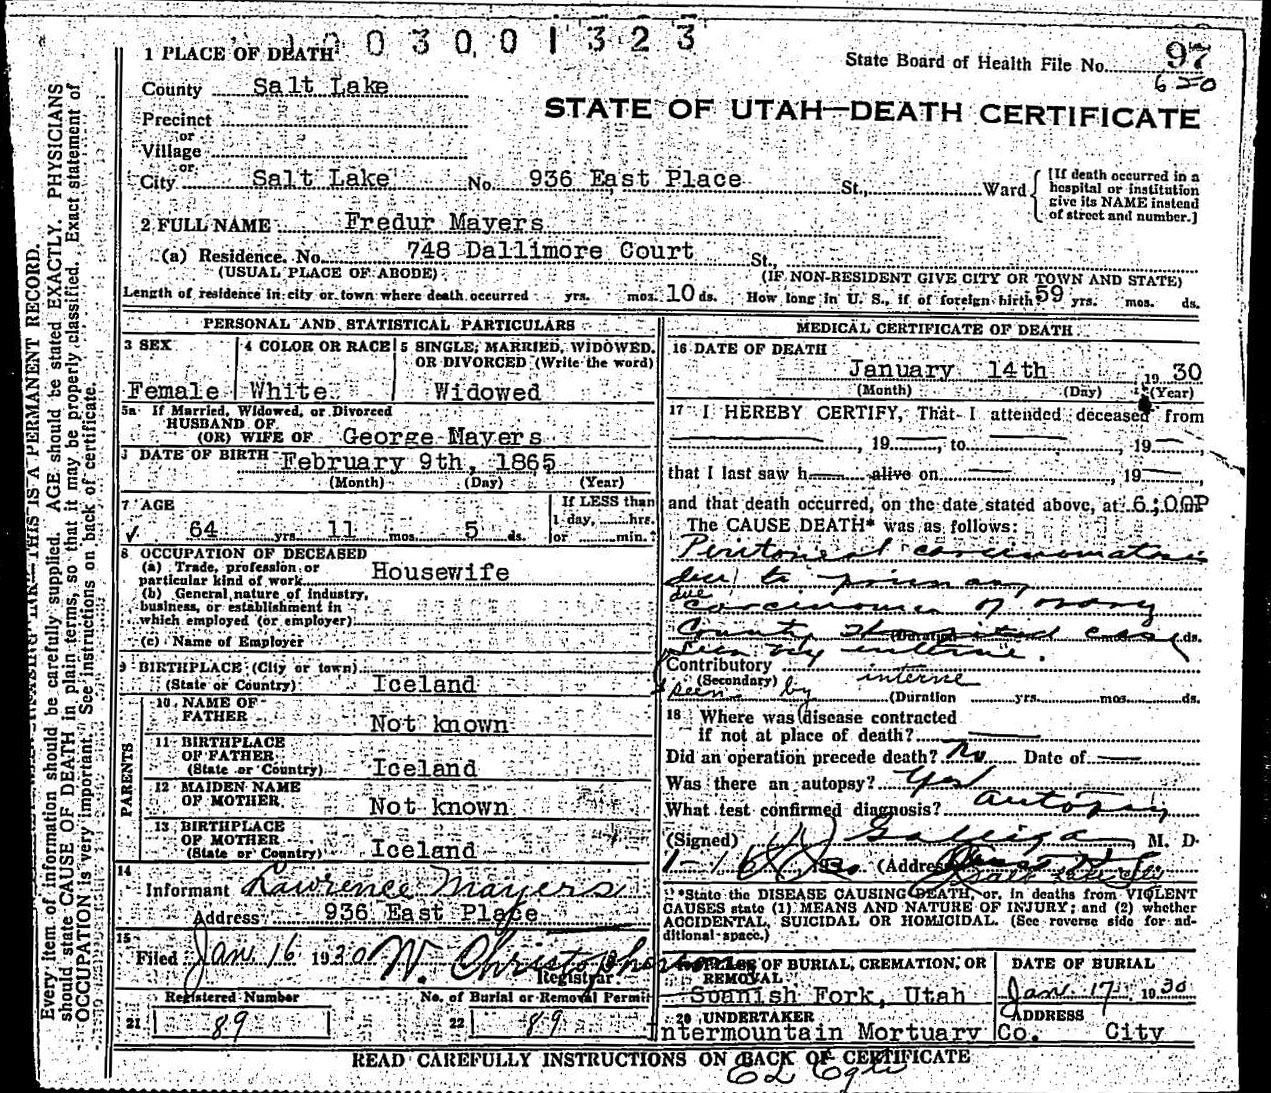 1003001323
1 PLACE OF DEATH
State Board of Health File No. 97
620
County Salt Lake
STATE OF UTAH—DEATH CERTIFICATE
Precinct
or
Village
or
City Salt Lake No. 936 East Place St., Ward
[If death occurred in a
hospital or institution
give its NAME instead
of street and number.]
2 FULL NAME Fredur Mayers
(a) Residence. No. 748 Dallimore Court St.,
(USUAL PLACE OF ABODE) (IF NON-RESIDENT GIVE CITY OR TOWN AND STATE)
Length of residence in city or town where death occurred yrs. mos. 10 ds. How long in U. S., if of foreign birth 59 yrs. mos. ds.
PERSONAL AND STATISTICAL PARTICULARS
3 SEX 4 COLOR OR RACE 5 SINGLE, MARRIED, WIDOWED,
OR DIVORCED (Write the word)
Female White Widowed
5a If Married, Widowed, or Divorced
HUSBAND OF
(OR) WIFE OF George Mayers
DATE OF BIRTH February 9th, 1865
(Month) (Day) (Year)
7 AGE If LESS than
1 day, hrs.
64 yrs. 11 mos. 5 ds. or min.?
8 OCCUPATION OF DECEASED
(a) Trade, profession or
particular kind of work Housewife
(b) General nature of industry,
business, or establishment in
which employed (or employer)
(c) Name of Employer
9 BIRTHPLACE (City or town)
(State or Country) Iceland
PARENTS
10 NAME OF
FATHER Not known
11 BIRTHPLACE
OF FATHER
(State or Country) Iceland
12 MAIDEN NAME
OF MOTHER Not known
13 BIRTHPLACE
OF MOTHER
(State or Country) Iceland
14
Informant Lawrence Mayers
Address 936 East Place
15
Filed Jan 16 1930 W. Christopherson
Registrar
Registered Number No. of Burial or Removal Permit
21 89 22 89
MEDICAL CERTIFICATE OF DEATH
16 DATE OF DEATH
January 14th 1930
(Month) (Day) (Year)
17 I HEREBY CERTIFY, That I attended deceased from
, 19 to , 19 ,
that I last saw h alive on , 19 ,
and that death occurred, on the date stated above, at 6:00P
The CAUSE DEATH* was as follows:
Peritoneal carcinomatosis
due to primary
due
carcinoma of ovary
County Hospital case
(Duration mos. ds.
seen by interne.
Contributory interne
(Secondary)
seen by (Duration yrs. mos. ds.
18 Where was disease contracted
if not at place of death?
Did an operation precede death? No Date of
Was there an autopsy? Yes
What test confirmed diagnosis? Autopsy
(Signed) Galligan M. D.
(Address
*State the DISEASE CAUSING DEATH, or, in deaths from VIOLENT
CAUSES state (1) MEANS AND NATURE OF INJURY; and (2) whether
ACCIDENTAL, SUICIDAL OR HOMICIDAL. (See reverse side for ad-
ditional space.)
19 PLACE OF BURIAL, CREMATION, OR
REMOVAL DATE OF BURIAL
Spanish Fork, Utah Jan 17 1930
20 UNDERTAKER ADDRESS
Intermountain Mortuary Co. City
READ CAREFULLY INSTRUCTIONS ON BACK OF CERTIFICATE
Every item of information should be carefully supplied. AGE should be stated EXACTLY. PHYSICIANS
should state CAUSE OF DEATH in plain terms, so that it may be properly classified. Exact statement of
OCCUPATION is very important. See instructions on back of certificate.
THIS IS A PERMANENT RECORD.